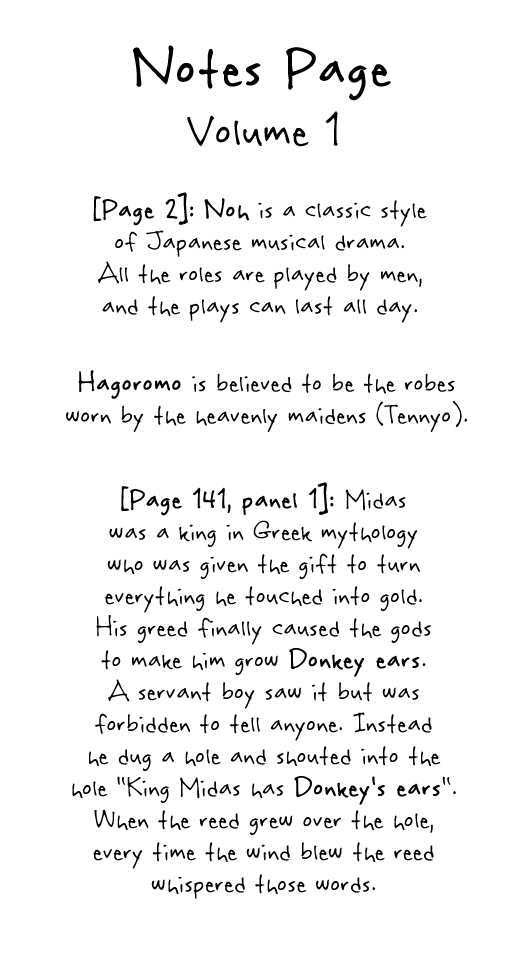 Notes Page
Volume 1
[Page 2]: Noh is a classic style
of Japanese musical drama.
All the roles are played by men,
and the plays can last all day.
Hagoromo is believed to be the robes
worn by the heavenly maidens (Tennyo).
[Page 141, panel 1]: Midas
was a king in Greek mythology
who was given the gift to turn
everything he touched into gold.
His greed finally caused the gods
to make him grow Donkey ears.
A servant boy saw it but was
forbidden to tell anyone. Instead
he dug a hole and shouted into the
hole "King Midas has Donkey's ears".
When the reed grew over the hole,
every time the wind blew the reed
whispered those words.